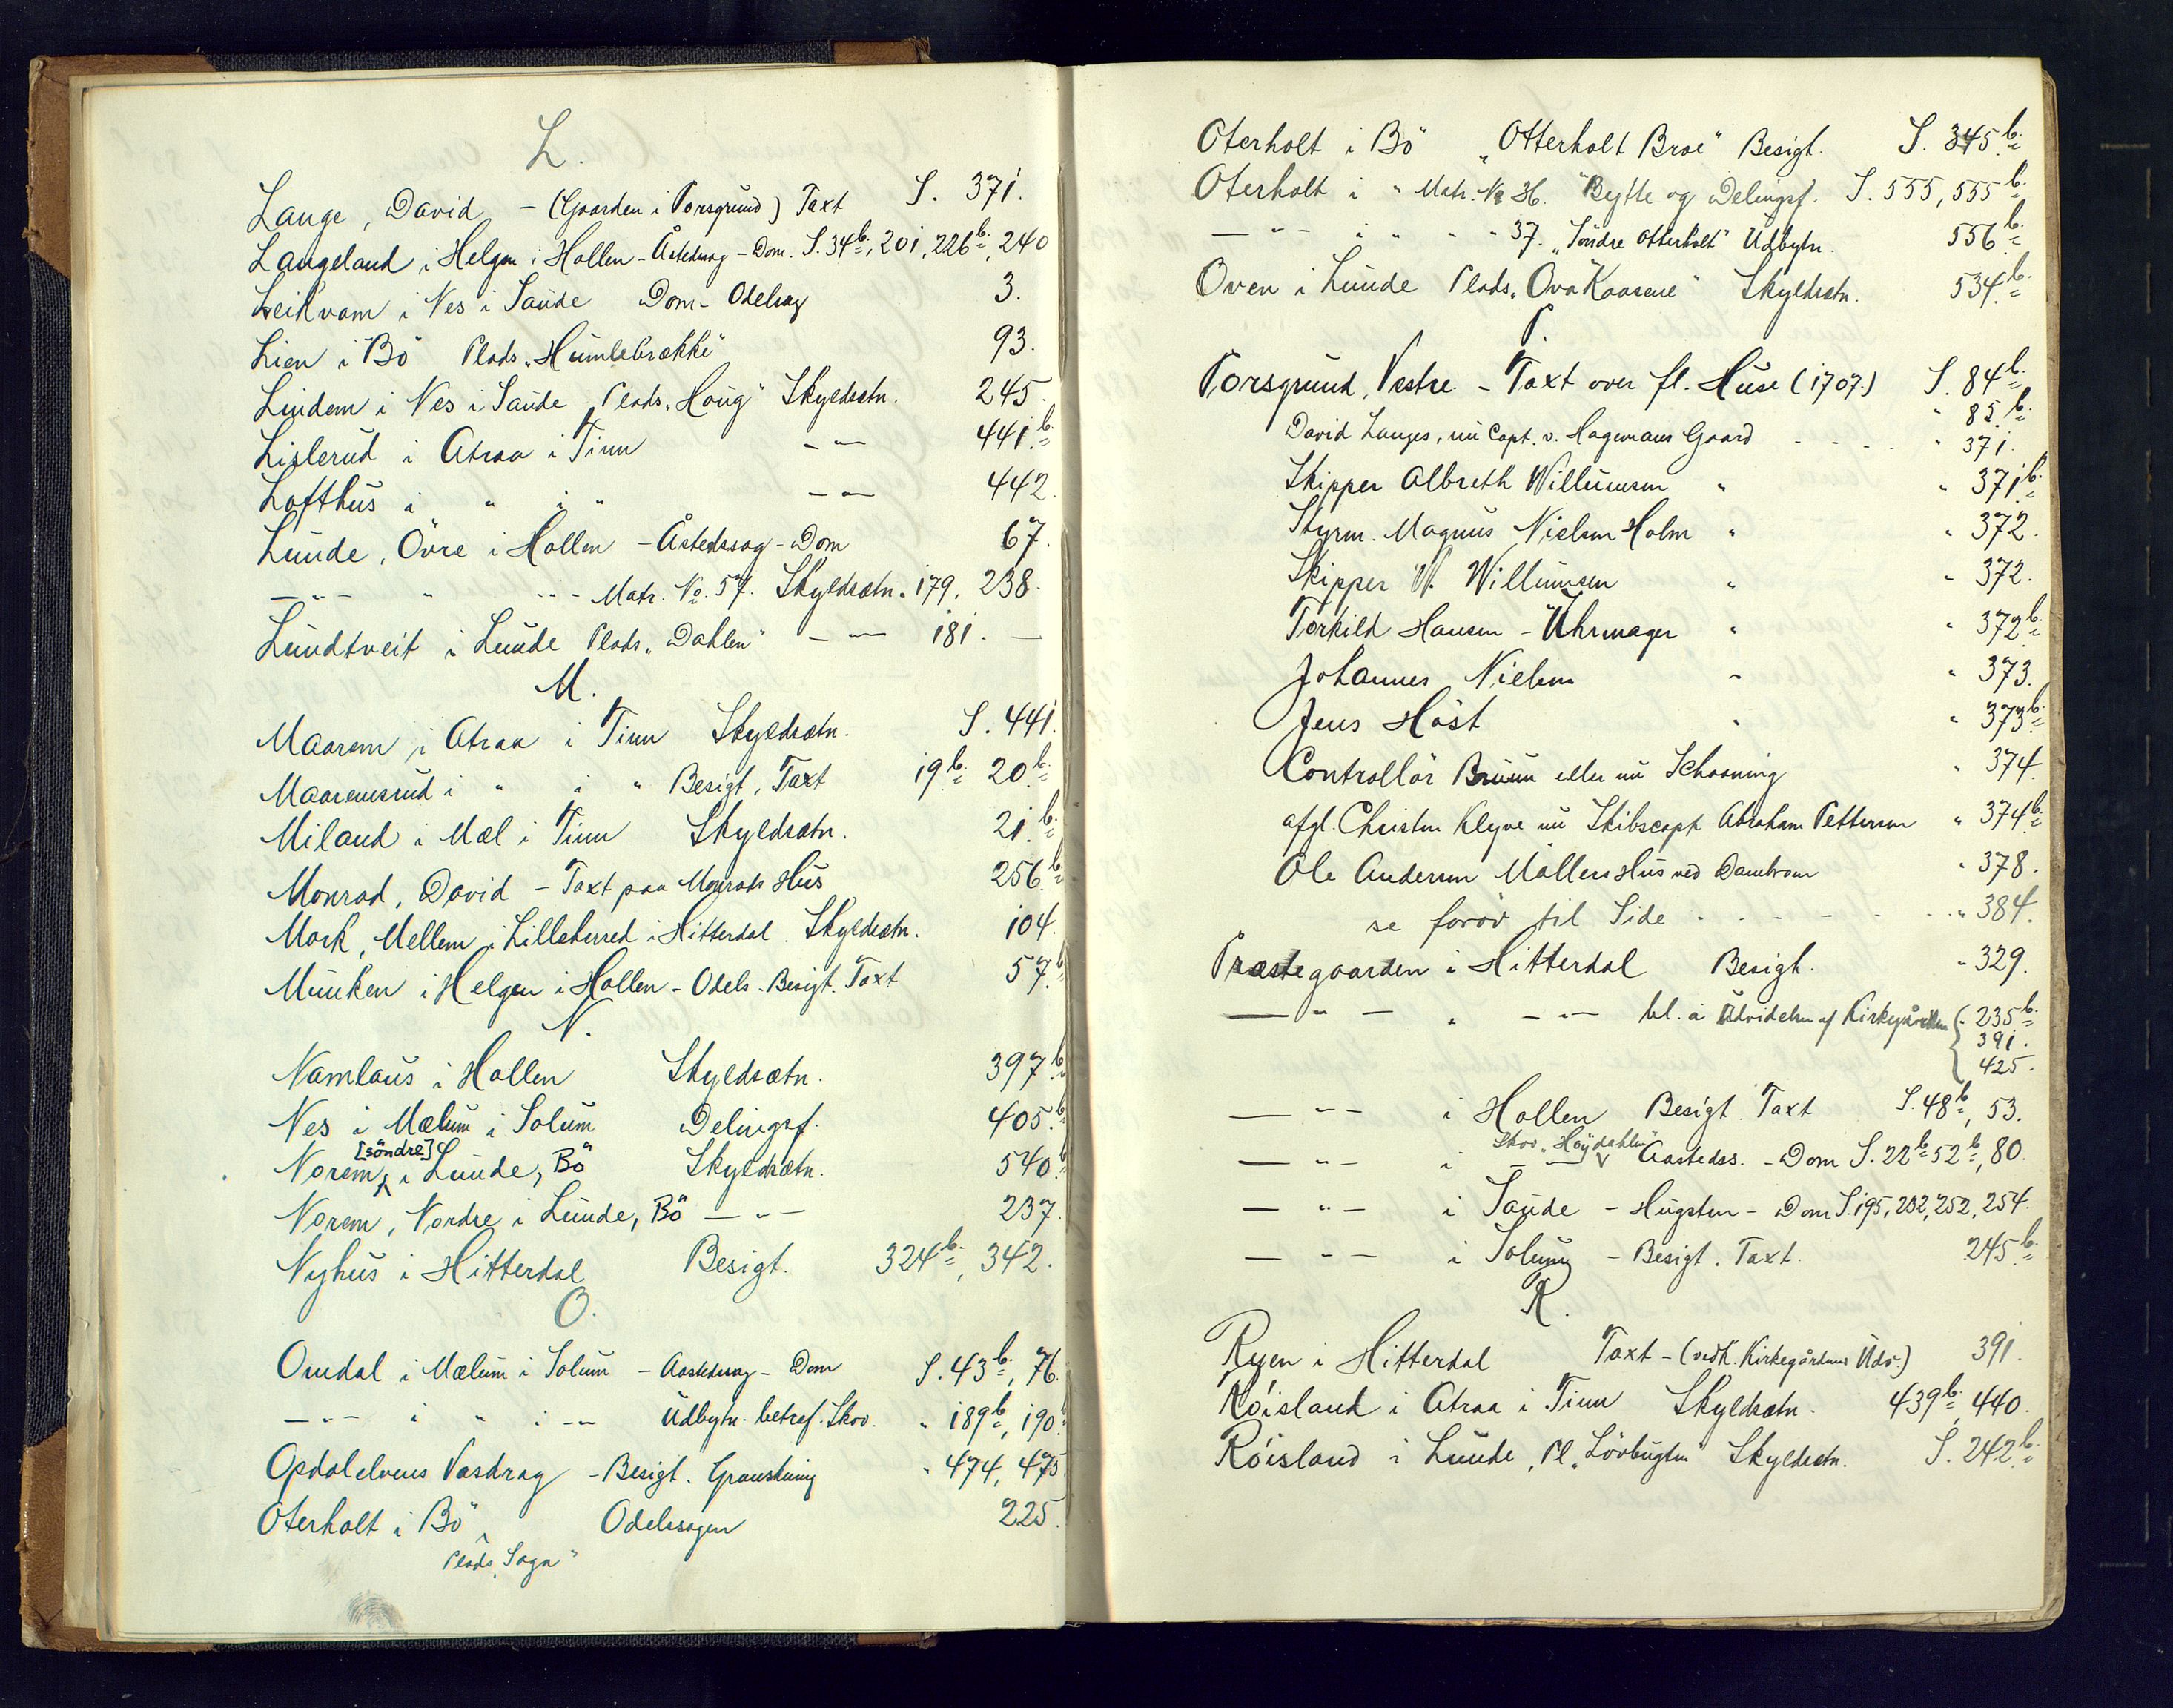 L.
Lange, David - (Gaarden i Porsgrund) Taxt S. 371.
Langeland i Helgen i Hollen - Åstedssag - Dom. S. 34b., 201, 226b., 240
Leikvam i Nes i Saude Dom - Odelssag 3.
Lien i Bö Plads „Humlebrække" 93.
Lindem i Nes i Saude Plads „Haug" Skyldsætn. 245.
Lislerud i Atraa i Tinn — " — 441b.
Lofthus i " i " — " — 442.
Lunde, Övre i Hollen - Åstedssag - Dom 67.
— " — " " - Matr. No. 57. Skyldsætn. 179, 238.
Lundtveit i Lunde Plads „Dahlen" — " — 181. —
M.
Maarem i Atraa i Tinn Skyldsætn. S. 441.
Maaremsrud i " i " Besigt, Taxt 19b. 20b.
Miland i Mæl i Tinn Skyldsætn. 21.b.
Monrad, David - Taxt paa Monrads Hus 256.b.
Mork, Mellem i Lilleherred i Hitterdal. Skyldsætn. 104.
Munken i Helgen i Hollen - Odels - Besigt. Taxt 57.b
N.
Namlaus i Hollen Skyldsætn. 397.b.
Nes i Mælum i Solum Delingsf. 405.b.
Norem, [söndre] i Lunde, Bö Skyldsætn. 540.b
Norem, Nordre i Lunde, Bö — " — 237.
Nyhus i Hitterdal Besigt. 324b., 342.
O.
Omdal i Mælum i Solum - Aastedssag - Dom S. 43b., 76.
— " — i " i — " Udbytn. betref. Skov. " 189b., 190b.
Opdalelvens Vasdrag - Besigt. Granskning " 474, 475
Oterholt i Bö Odelssagen 225.
Plads „Saga"
Oterholt i Bö „Otterholt Broe" Besigt. S. 345.b.
Oterholt i " Matr. No 36. "Bytte og Delingsf. S. 555, 555b.
— " — " " " " 37. „Söndre Otterholt" Udbytn. 556.b.
Oven i Lunde Plads „Ova Kaasene" Skyldsætn. 534.b.
P.
Porsgrund, Vestre - Taxt over fl. Huse (1707.) S. 84b.
" 85.b.
David Langes, nu Capt. v. Hagemans Gaard - - - - " 371.
Skipper Albreth Willumsen " " 371b.
Styrm. Magnus Nielsen Holm " " 372.
Skipper W. Willumsen " " 372.
Torkild Hansen - Uhrmager " " 372b.
Johannes Nielsen " " 373.
Jens Höst " " 373b.
Controllör Bruun eller nu Schooning " 374.
afgl. Christen Klyve nu Skibscapt. Abraham Pettersen " 374b.
Ole Andersen Möllers Hus ved " 378.
se foröv til Side - - - - - - " 384.
Præstegaarden i Hitterdal Besigt. " 329.
— " — " — " — bl. a Udvidelsen af Kirkegården { " 235b.
391.
425.
— " — i Hollen Besigt. Taxt S. 48b, 53.
Skov „Höydahlen"
— " — i — " — Aastedss. - Dom S. 22b 52b, 80.
— " — i Saude - Hugsten - Dom S. 195, 232, 252, 254.
— " — i Solum - Besigt. Taxt. 245.b.
R.
Ryen i Hitterdal Taxt - (vedk. Kirkegårdens Udv.) 391.
Röisland i Atraa i Tinn Skyldsætn. 439b. 440.
Röisland i Lunde, Pl. „Lövbugten" Skyldsætn. S. 242.b.